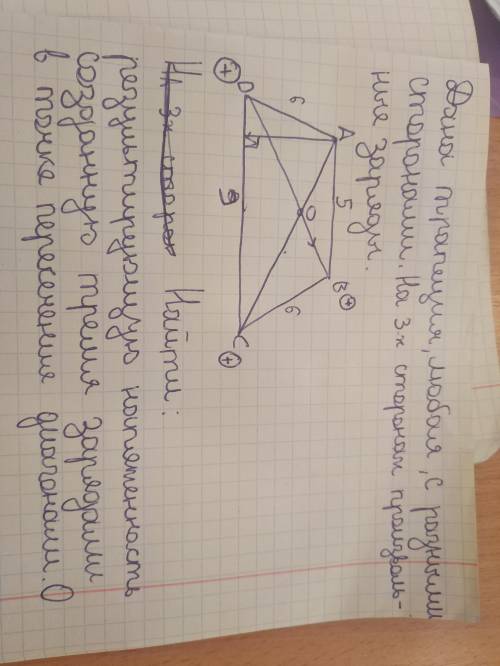 Дана трапеция, любая, с разными
сторонами. На 3-х сторонах произволь-
ные заряды.
A
5
B
+
6
O
D
+
9
6
C
+
На 3х сторон Найти:
результирующую напряженность
созданную тремя зарядами
в точке пересечения диагонали. O